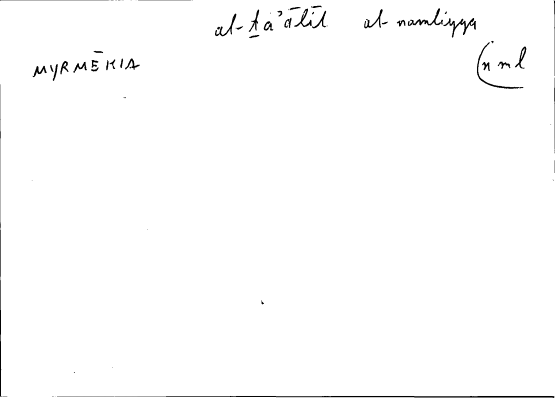 al-ṯa'ālīl al-namliyya
MYRMĒKIA
(nml